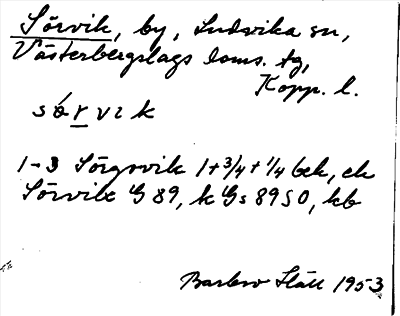 Sörvik, by, Ludvika sn,
Västerbergslags doms. tg,
Kopp. l.
sö́rvik
1-3 Sörgsvik 1+3/4+1/4 beb, ek
Sörvik G 89, k Gs 89 SO, kb
Barbro Ståll 1953